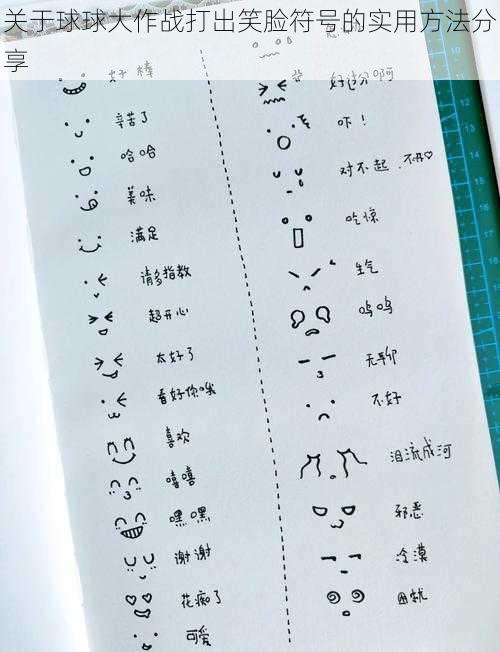 关于球球大作战打出笑脸符号的实用方法分
享
好棒
辛苦了
哈哈
美味
满足
请多指教
超开心
太好了
看好你哦
喜欢
嘻嘻
嘿嘿
谢谢
花痴了
可爱
好过分啊
吓！
对不起.不开♡
吃惊
生气
呜呜
无聊
不好
泪流成河
邪恶
冷漠
困扰
10
11
12
13
14
15
16
17
18